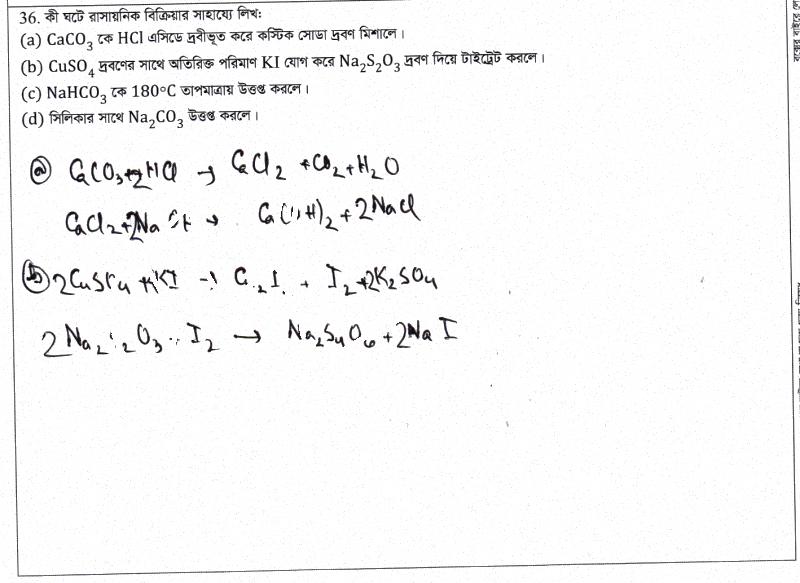 36. কী ঘটে রাসায়নিক বিক্রিয়ার সাহায্যে লিখ:
(a) CaCO₃ কে HCl এসিডে দ্রবীভূত করে কস্টিক সোডা দ্রবণ মিশালে।
(b) CuSO₄ দ্রবণের সাথে অতিরিক্ত পরিমাণ KI যোগ করে Na₂S₂O₃ দ্রবণ দিয়ে টাইট্রেট করলে।
(c) NaHCO₃ কে 180°C তাপমাত্রায় উত্তপ্ত করলে।
(d) সিলিকার সাথে Na₂CO₃ উত্তপ্ত করলে।
ⓐ CaCO₃+2HCl → CaCl₂ +CO₂+H₂O
CaCl₂+2Na → Ca( H)₂+2NaCl
ⓑ 2Cu + KI → I₂+2K₂SO₄
2Na₂ ₂O₃ I₂ → Na₂S₄O₆+2NaI